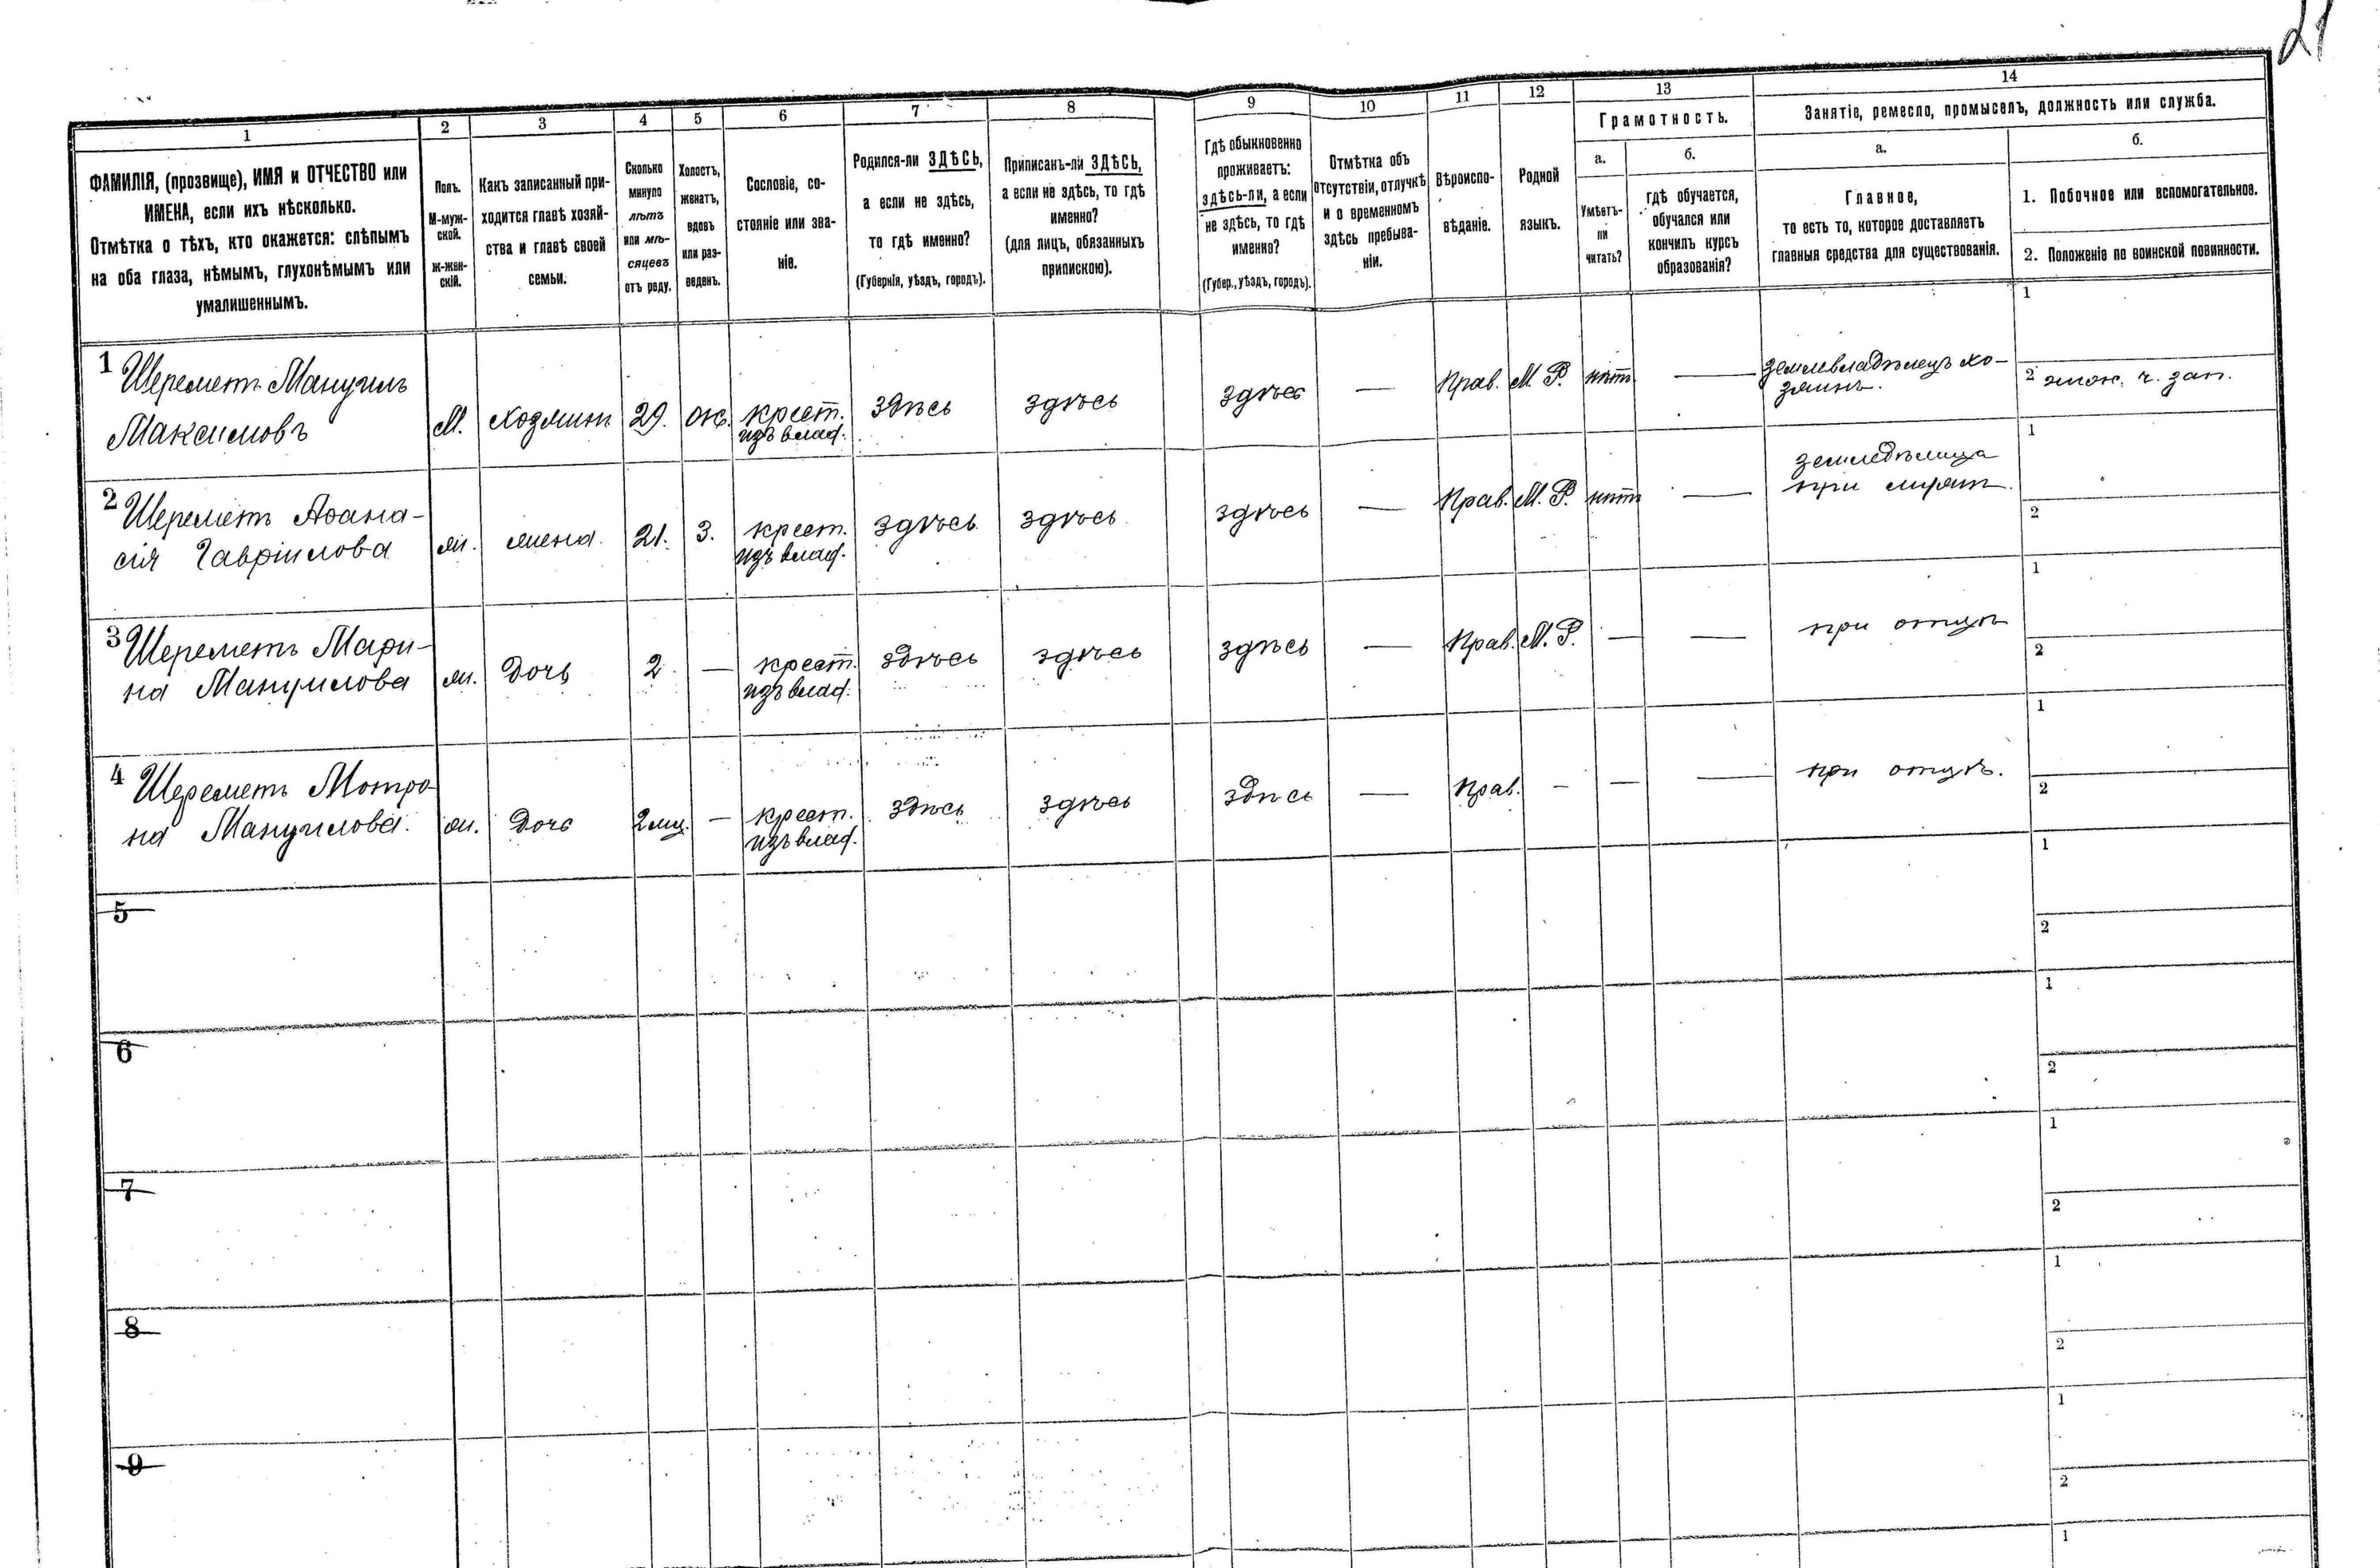 21
1
2
3
4
5
6
7
8
9
10
11
12
13
14
ФАМИЛІЯ, (прозвище), ИМЯ и ОТЧЕСТВО или
ИМЕНА, если ихъ нѣсколько.
Отмѣтка о тѣхъ, кто окажется: слѣпымъ
на оба глаза, нѣмымъ, глухонѣмымъ или
умалишеннымъ.
Полъ.
М-муж-
ской.
ж-жен-
скій.
Какъ записанный при-
ходится главѣ хозяй-
ства и главѣ своей
семьи.
Сколько
минуло
лѣтъ
или мѣ-
сяцевъ
отъ роду.
Холостъ,
женатъ,
вдовъ
или раз-
веденъ.
Сословіе, со-
стояніе или зва-
ніе.
Родился-ли ЗДѢСЬ,
а если не здѣсь,
то гдѣ именно?
(Губернія, уѣздъ, городъ).
Приписанъ-ли ЗДѢСЬ,
а если не здѣсь, то гдѣ
именно?
(для лицъ, обязанныхъ
припискою).
Гдѣ обыкновенно
проживаетъ:
здѣсь-ли, а если
не здѣсь, то гдѣ
именно?
(Губер., уѣздъ, городъ).
Отмѣтка объ
отсутствіи, отлучкѣ
и о временномъ
здѣсь пребыва-
ніи.
Вѣроиспо-
вѣданіе.
Родной
языкъ.
Грамотность.
а.
Умѣетъ-
ли
читать?
б.
гдѣ обучается,
обучался или
кончилъ курсъ
образованія?
Занятіе, ремесло, промыселъ, должность или служба.
а.
Главное,
то есть то, которое доставляетъ
главныя средства для существованія.
б.
1. Побочное или вспомогательное.
2. Положеніе по воинской повинности.
1 Шереметъ Мануилъ
Максимовъ
М.
хозяинъ
29.
ж.
крест.
изъ влад.
здѣсь
здѣсь
здѣсь
—
Прав.
М. Р.
нѣтъ
—
землевладѣлецъ хо-
зяинъ.
1
2 зап.
2 Шереметъ Аѳана-
сія Гавріилова
ж.
жена.
21.
З.
крест.
изъ влад.
здѣсь
здѣсь
здѣсь
—
Прав.
М. Р.
нѣтъ
—
при мужѣ.
1
2
3 Шереметъ Мари-
на Мануилова
ж.
Дочь
2
—
крест.
изъ влад.
здѣсь
здѣсь
здѣсь
—
Прав.
М. Р.
—
—
при отцѣ
1
2
4 Шереметъ Мотро-
на Мануилова.
ж.
Дочь
2 мц.
—
крест.
изъ влад.
здѣсь
здѣсь
здѣсь
—
Прав.
–
—
—
при отцѣ.
1
2
5
1
2
6
1
2
7
1
2
8
1
2
9
1
2
1